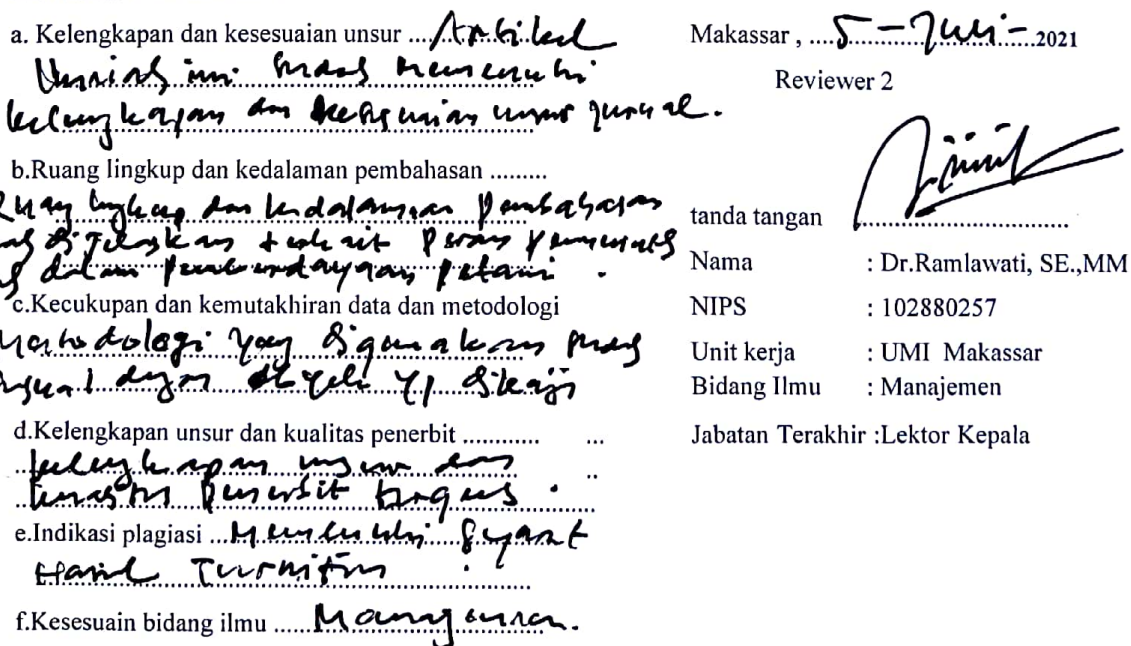 a. Kelengkapan dan kesesuaian unsur .... Artikel
ini sudah memenuhi
kelengkapan dan kesesuaian unsur jurnal.
b.Ruang lingkup dan kedalaman pembahasan .........
Ruang lingkup dan kedalaman pembahasan
dijelaskan terkait peran pemerintah
dalam pemberdayaan petani .
c.Kecukupan dan kemutakhiran data dan metodologi
Metodologi yang digunakan sudah
dengan obyek yg dikaji
d.Kelengkapan unsur dan kualitas penerbit ............. ...
kelengkapan unsur dan
kualitas penerbit bagus .
e.Indikasi plagiasi ... Memenuhi syarat
Hasil Turnitin .
f.Kesesuain bidang ilmu ...... Manajemen.
Makassar , .... 5 - Juli - 2021
Reviewer 2
tanda tangan
Nama : Dr.Ramlawati, SE.,MM
NIPS : 102880257
Unit kerja : UMI Makassar
Bidang Ilmu : Manajemen
Jabatan Terakhir :Lektor Kepala